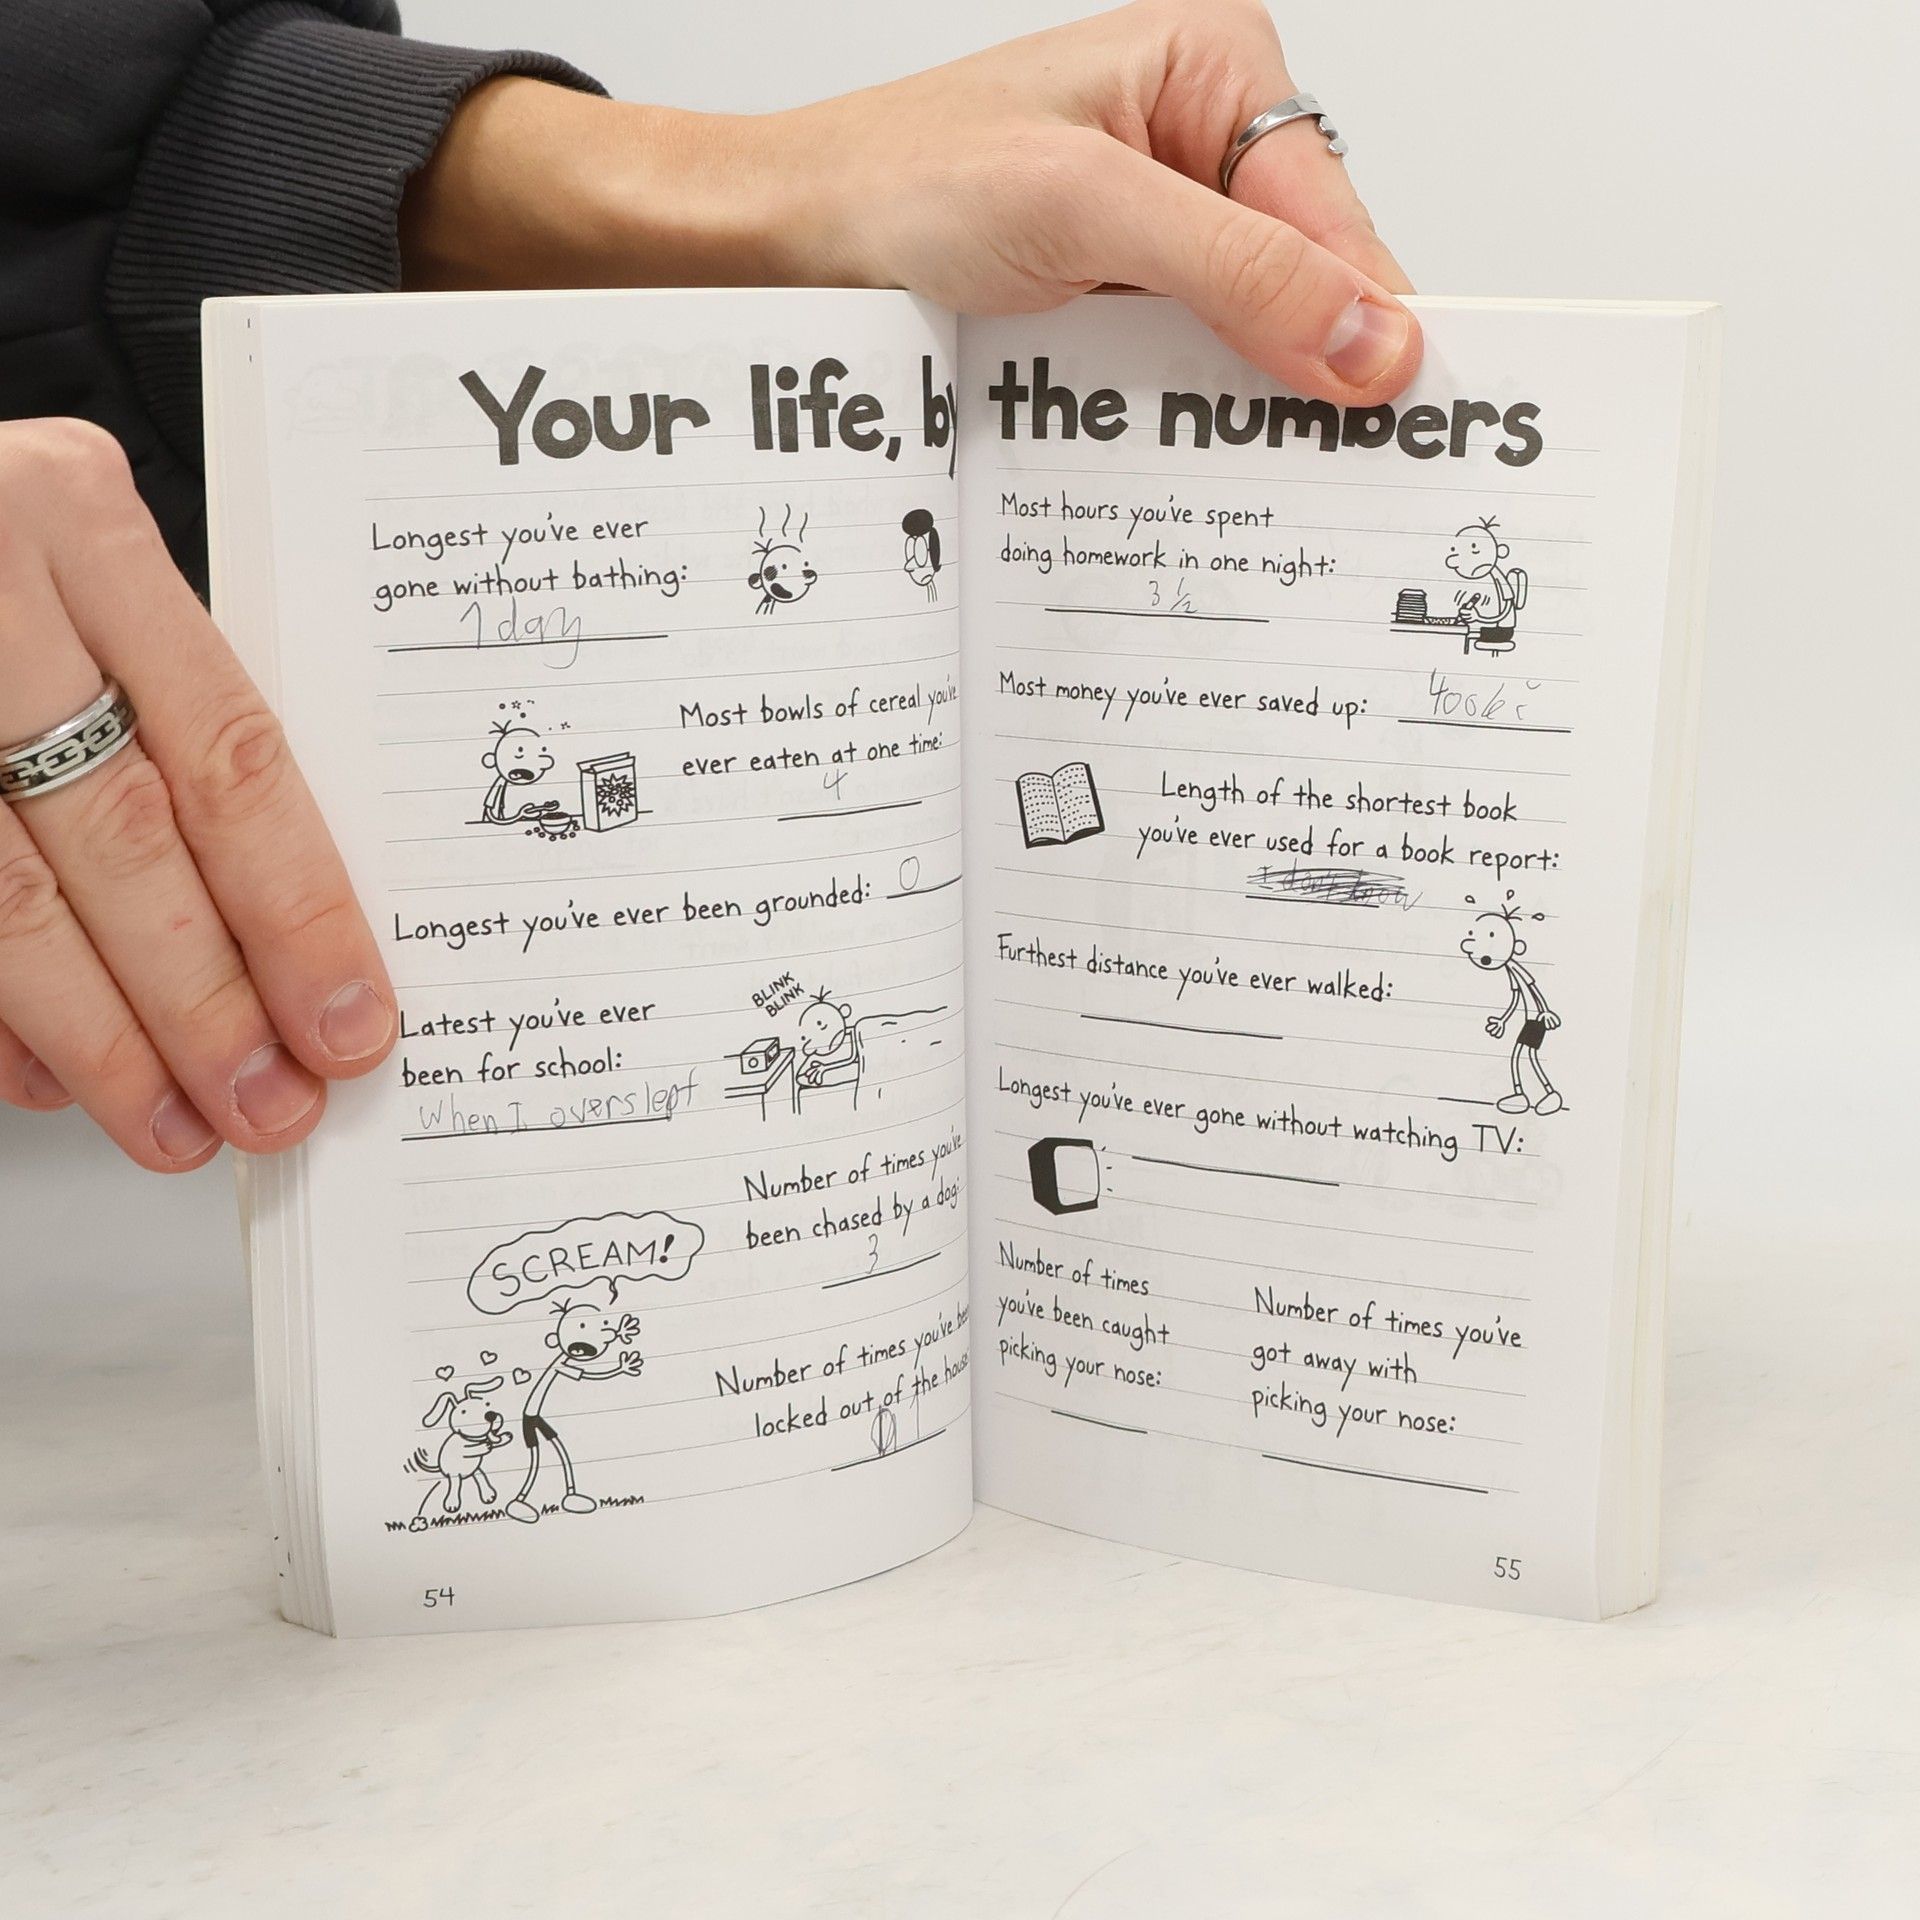 Your life, by the numbers
Longest you've ever
gone without bathing:
1 day
Most bowls of cereal you've
ever eaten at one time:
4
Longest you've ever been grounded:
0
Latest you've ever
been for school:
when I overslept
BLINK
BLINK
Number of times you've
been chased by a dog:
3
SCREAM!
Number of times you've been
locked out of the house:
54
Most hours you've spent
doing homework in one night:
3 1/2
Most money you've ever saved up:
Length of the shortest book
you've ever used for a book report:
I don't know
Furthest distance you've ever walked:
Longest you've ever gone without watching TV:
Number of times
you've been caught
picking your nose:
Number of times you've
got away with
picking your nose:
55